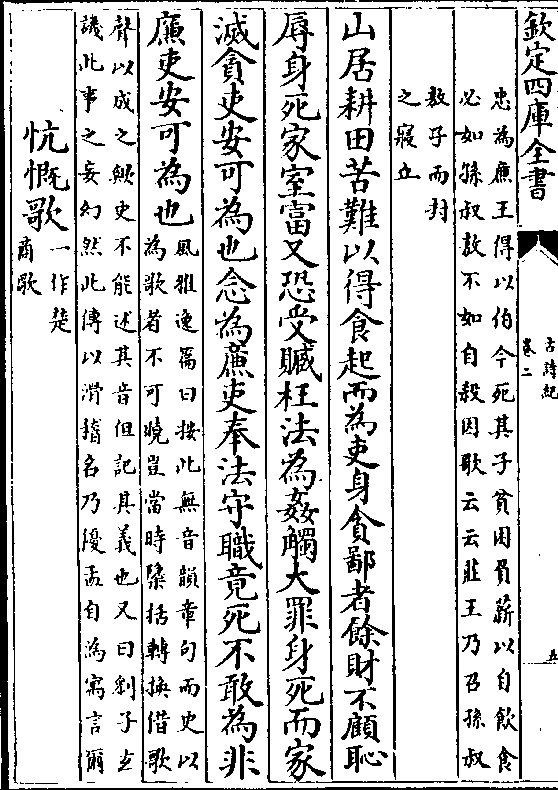 欽定四庫全書
古詩紀
卷二
五
忠為廉王得以伯今死其子貧困負薪以自飲食
必如孫叔敖不如自殺因歌云云莊王乃召孫叔
敖子而封
之寢丘
山居耕田苦難以得食起而為吏身貪鄙者餘財不顧恥
辱身死家室富又恐受賕枉法為姦觸大罪身死而家
滅貪吏安可為也念為廉吏奉法守職竟死不敢為非
廉吏安可為也
風雅逸篇曰按此無音韻章句而史以
為歌者不可曉豈當時櫽括轉換借歌
聲以成之歟史不能述其音但記其義也又曰劉子玄
譏此事之妄幻然此傳以滑稽名乃優孟自為寓言爾
忼慨歌
一作楚
商歌